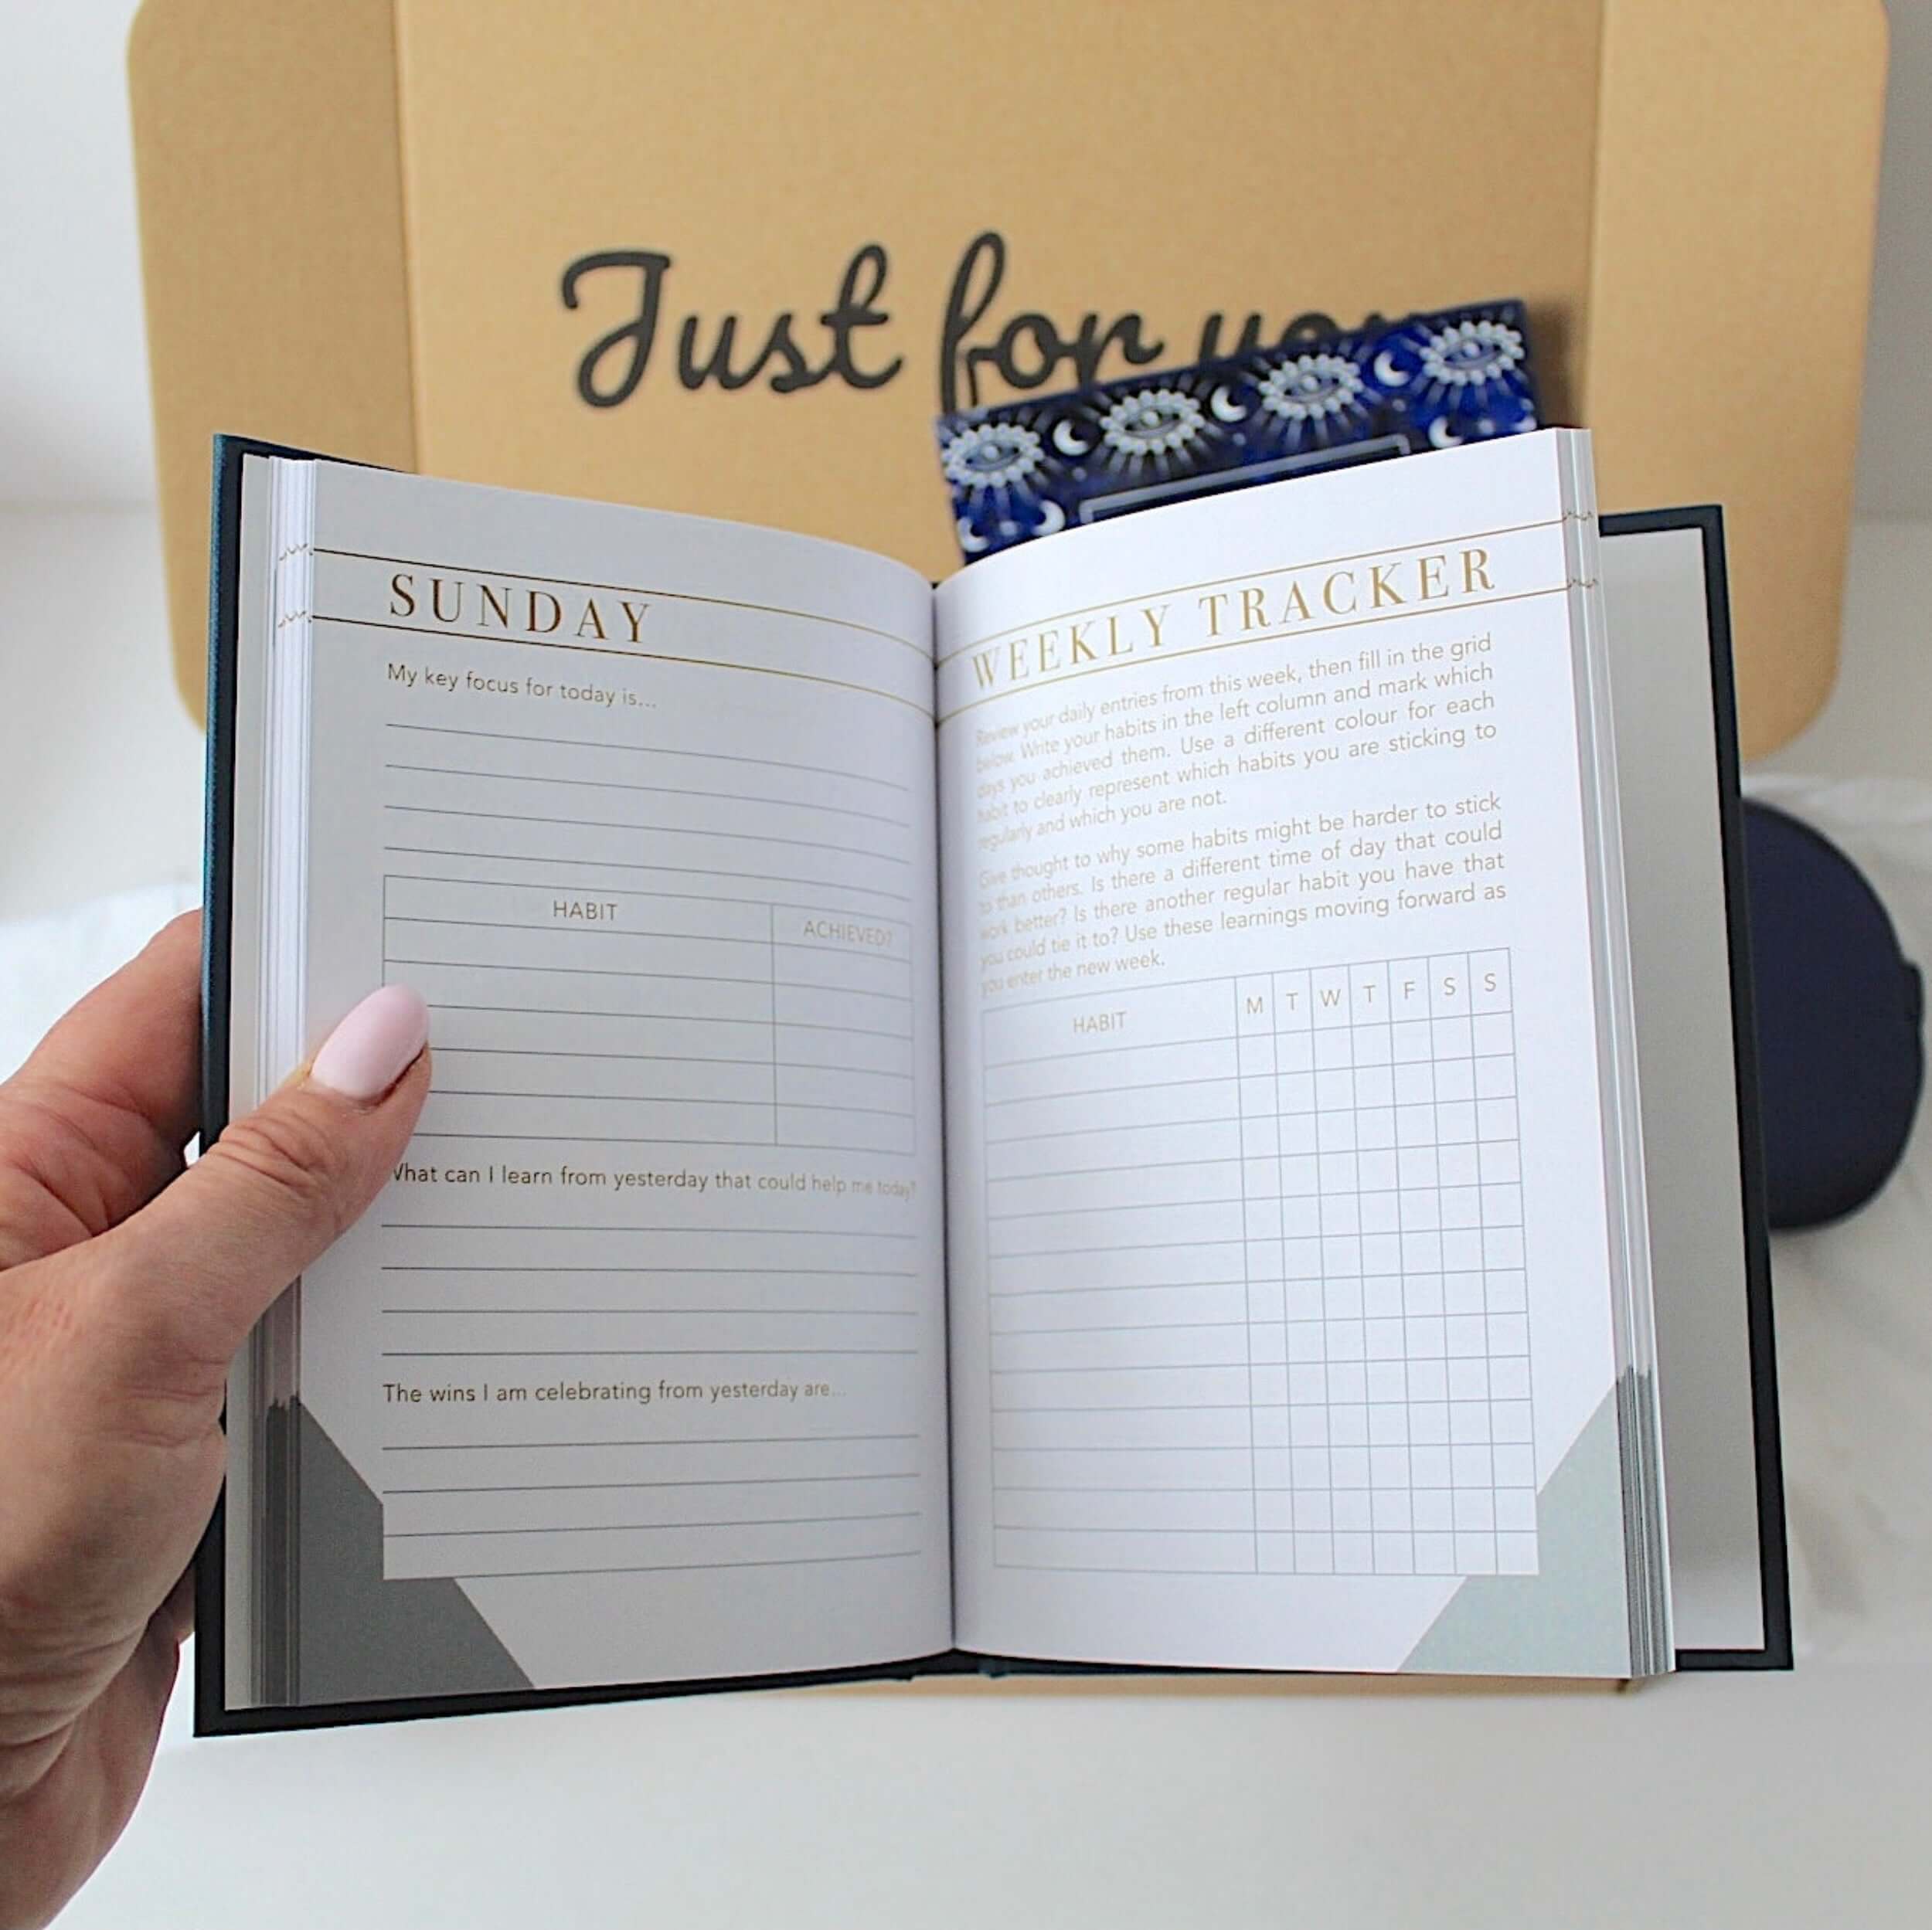 Just for
SUNDAY
My key focus for today is...
HABIT
ACHIEVED?
What can I learn from yesterday that could help me today?
The wins I am celebrating from yesterday are...
WEEKLY TRACKER
Review your daily entries from this week, then fill in the grid
below. Write your habits in the left column and mark which
days you achieved them. Use a different colour for each
habit to clearly represent which habits you are sticking to
regularly and which you are not.
Give thought to why some habits might be harder to stick
to than others. Is there a different time of day that could
work better? Is there another regular habit you have that
you could tie it to? Use these learnings moving forward as
you enter the new week.
HABIT M T W T F S S